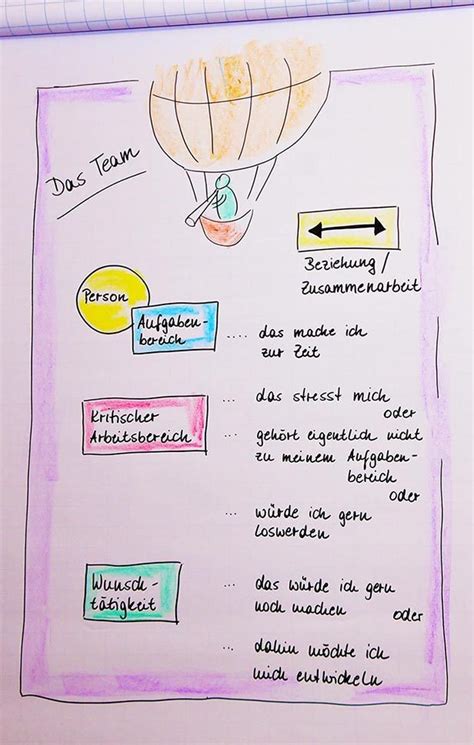 Das Team
Beziehung/
Zusammenarbeit
Person
Aufgaben-
bereich
.... das mache ich
zur Zeit
Kritischer
Arbeitsbereich
... das stresst mich
oder
... gehört eigentlich nicht
zu meinem Aufgaben-
bereich
oder
... würde ich gern
loswerden
Wunsch-
tätigkeit
... das würde ich gern
noch machen oder
... dahin möchte ich
mich entwickeln